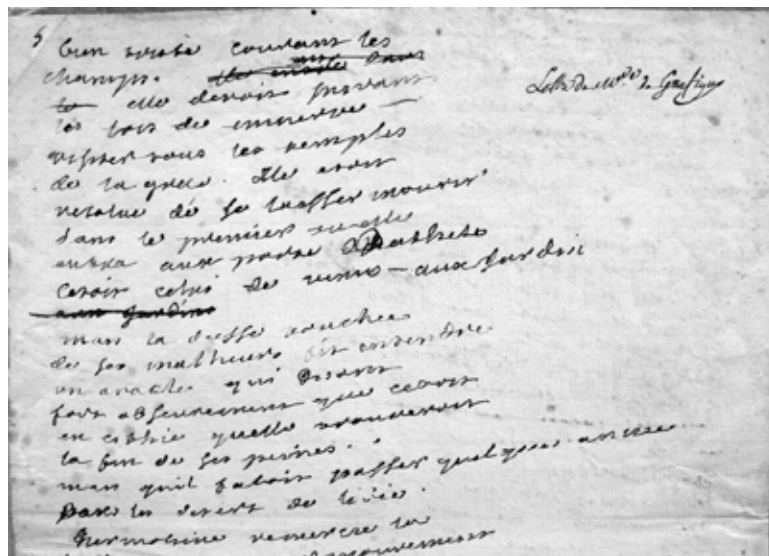 5 bien triste courant les
champs.
elle devoit suivant
les lois de minerve —
visiter tous les temples
de la grece. Elle etoit
resolue de se laisser mourir
dans le premier quelle
aux portes
cetoit celui de venus — aux jardin
aux jardins
mais la desse touchee
de ses malheurs fit entendre
un oracle qui disoit
fort obscurement que cetoit
en quelle trouveroit
la fin de ses peines.
mais quil faloit passer quelque annee
dans les desert de
hermosine remercie la
Lettre de Mde de Grafigny